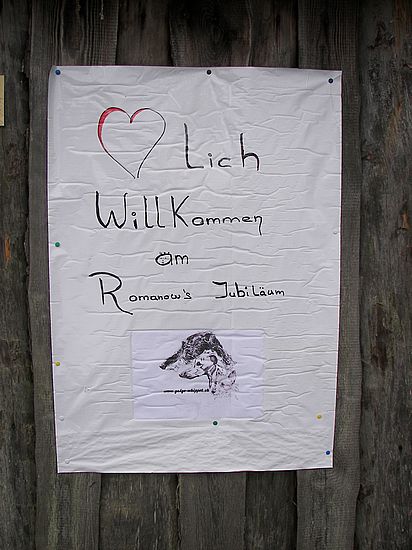 Lich
WillKommen
am
Romanow's Jubiläum